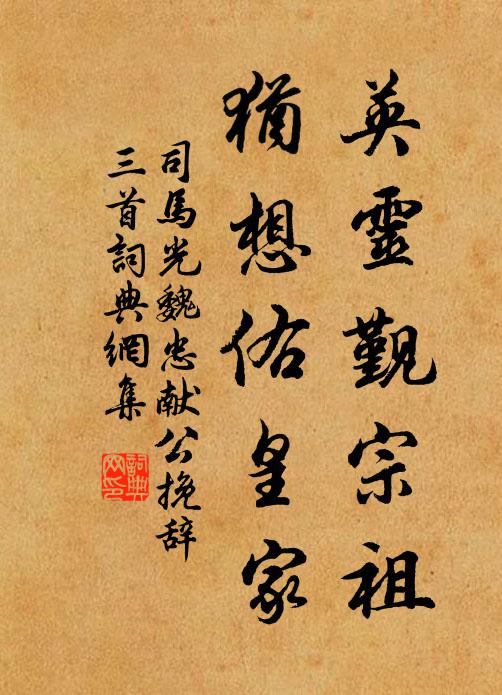 英靈觀宗祖
猶想佑皇家
司馬光魏忠献公挽辞
三首詞典網集
詞典网印